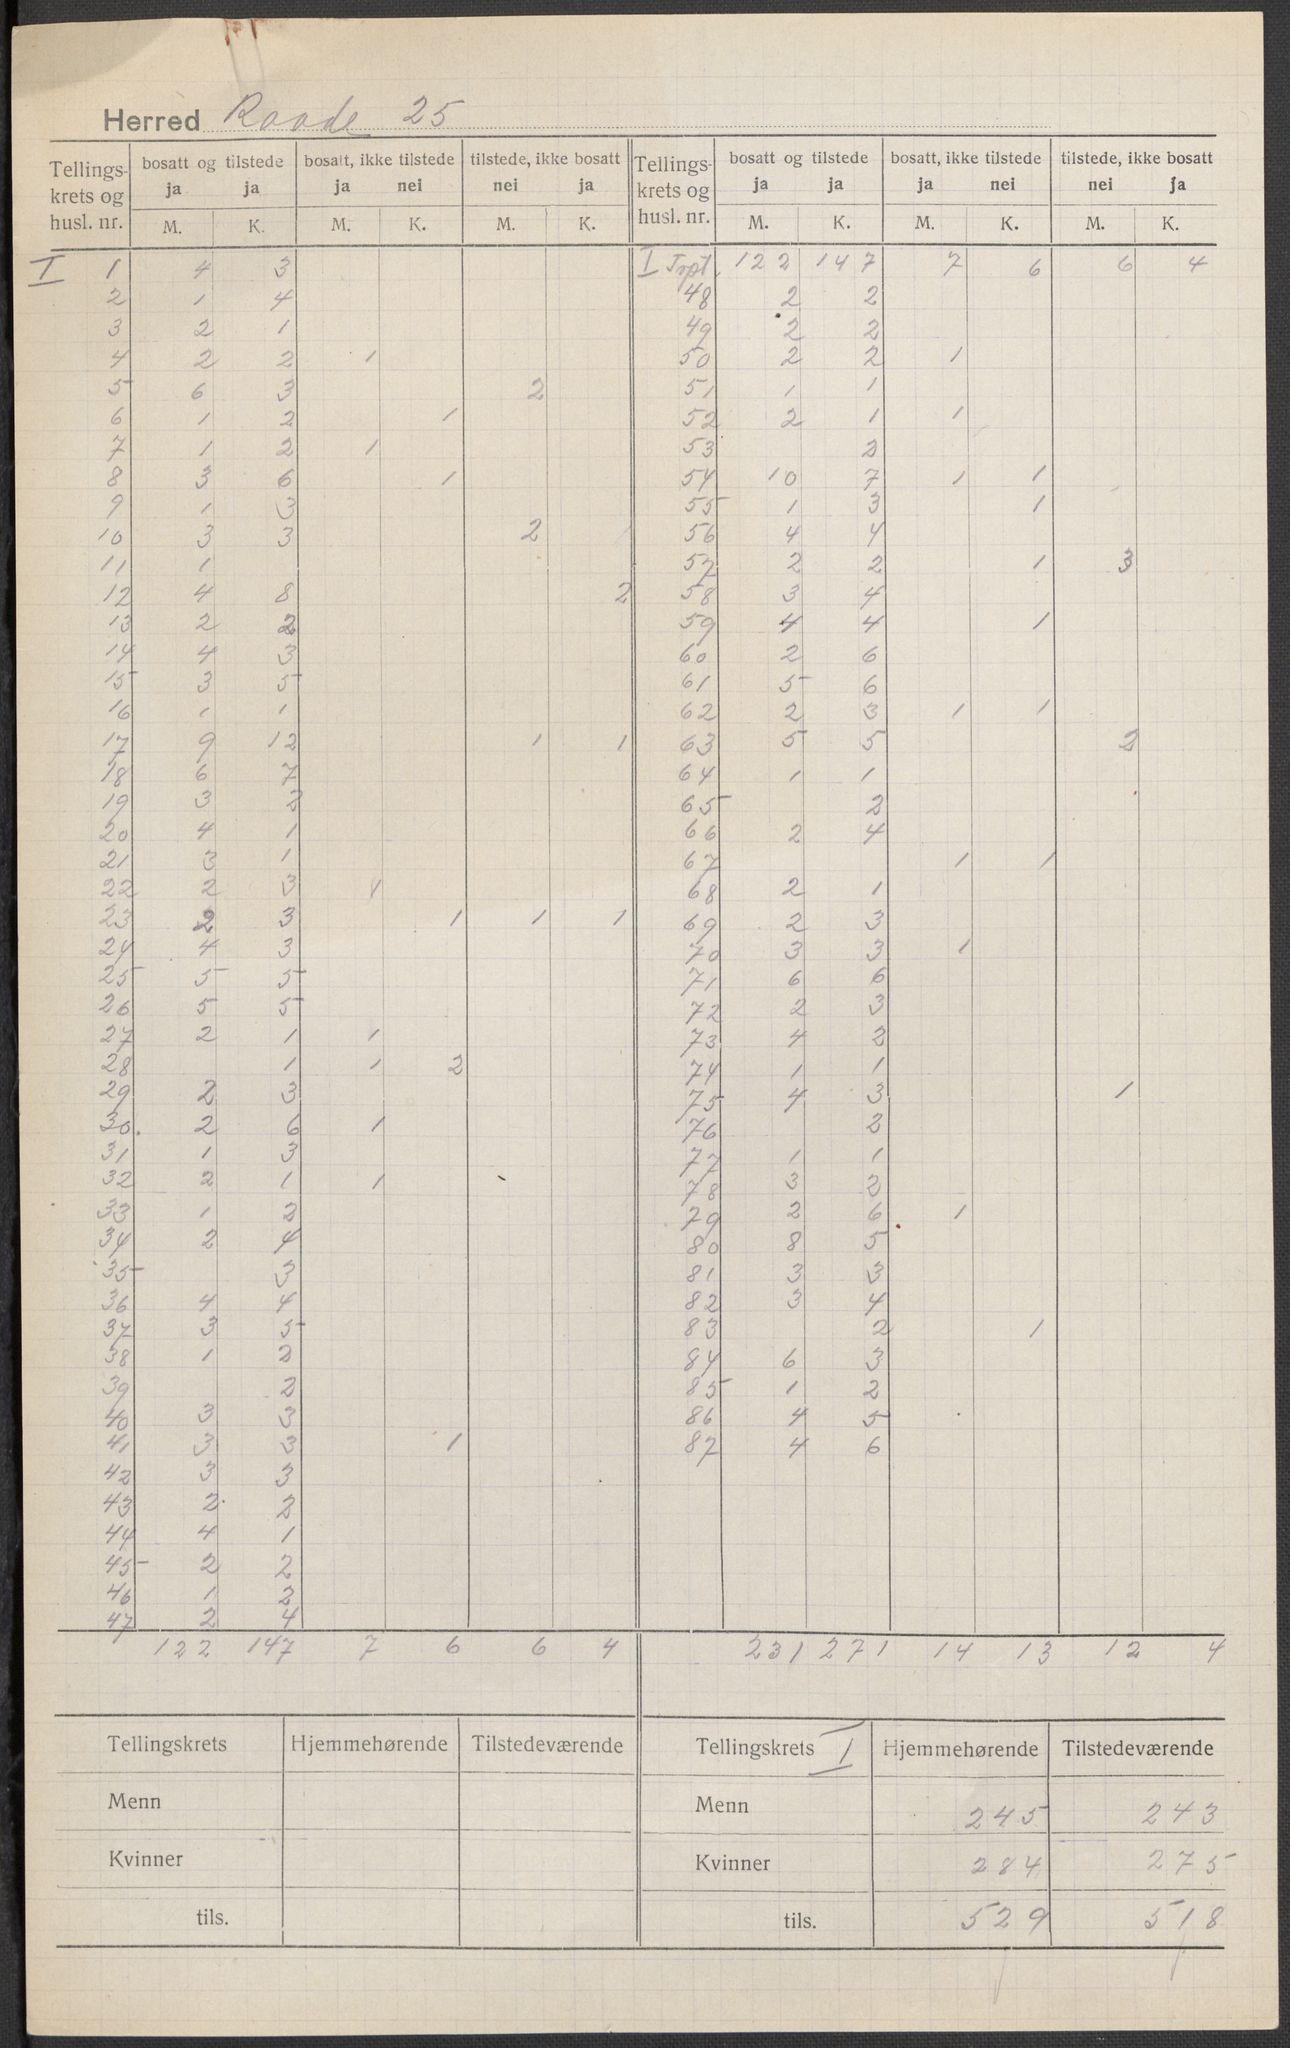 Herred Raade 25
Tellings-krets og husl. nr. | bosatt og tilstede ja ja | bosatt, ikke tilstede ja nei | tilstede, ikke bosatt nei ja | Tellings-krets og husl. nr. | bosatt og tilstede ja ja | bosatt, ikke tilstede ja nei | tilstede, ikke bosatt nei ja
M. K. M. K. M. K. M. K. M. K. M. K.
I 1 4 3
2 1 4
3 2 1
4 2 2 1
5 6 3 2
6 1 2 1
7 1 2 1
8 3 6 1
9 1 3
10 3 3 2
11 1
12 4 8 2
13 2 2
14 4 3
15 3 5
16 1 1
17 9 12 1 1
18 6 7
19 3 2
20 4 1
21 3 1
22 2 3 1
23 2 3 1 1 1
24 4 3
25 5 5
26 5 5
27 2 1 1
28 1 1 2
29 2 3
30 2 6 1
31 1 3
32 2 1 1
33 1 2
34 2 4
35 3
36 4 4
37 3 5
38 1 2
39 2
40 3 3
41 3 3 1
42 3 3
43 2 2
44 4 1
45 2 2
46 1 2
47 2 4
122 147 7 6 6 4
I Trpt. 122 147 7 6 6 4
48 2 2
49 2 2
50 2 2 1
51 1 1
52 2 1 1
53 2
54 10 7 1 1
55 1 3 1
56 4 4
57 2 2 1 3
58 3 4
59 4 4 1
60 2 6
61 5 6
62 2 3 1 1
63 5 5 2
64 1 1
65 2
66 2 4
67 1 1
68 2 1
69 2 3
70 3 3 1
71 6 6
72 2 3
73 4 2
74 1 1
75 4 3 1
76 2
77 1 1
78 3 2
79 2 6 1
80 8 5
81 3 3
82 3 4
83 2 1
84 6 3
85 1 2
86 4 5
87 4 6
231 271 14 13 12 4
Tellingskrets | Hjemmehørende | Tilstedeværende
Menn
Kvinner
tils.
Tellingskrets I | Hjemmehørende | Tilstedeværende
Menn 245 243
Kvinner 284 275
tils. 529 518